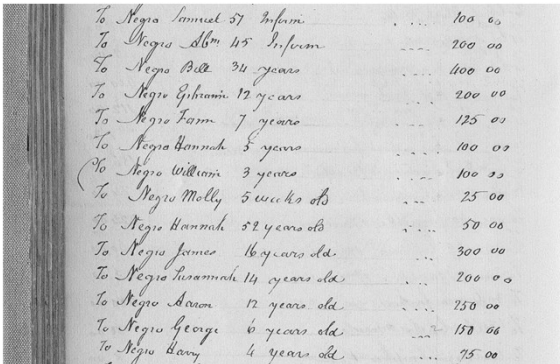 To Negro Samuel 57 Inform .... 100 00
To Negro Abm 45 Inform .... 200 00
To Negro Bill 34 years .... 400 00
To Negro Ephraim 12 years .... 200 00
To Negro Fann 7 years .... 125 00
To Negro Hannah 5 years .... 100 00
To Negro William 3 years .... 100 00
To Negro Molly 5 weeks old .... 25 00
To Negro Hannah 52 years old .... 50 00
To Negro James 16 years old .... 300 00
To Negro Susannah 14 years old .... 200 00
To Negro Aaron 12 years old .... 250 00
To Negro George 6 years old .... 150 00
To Negro Harry 4 years old .... 75 00